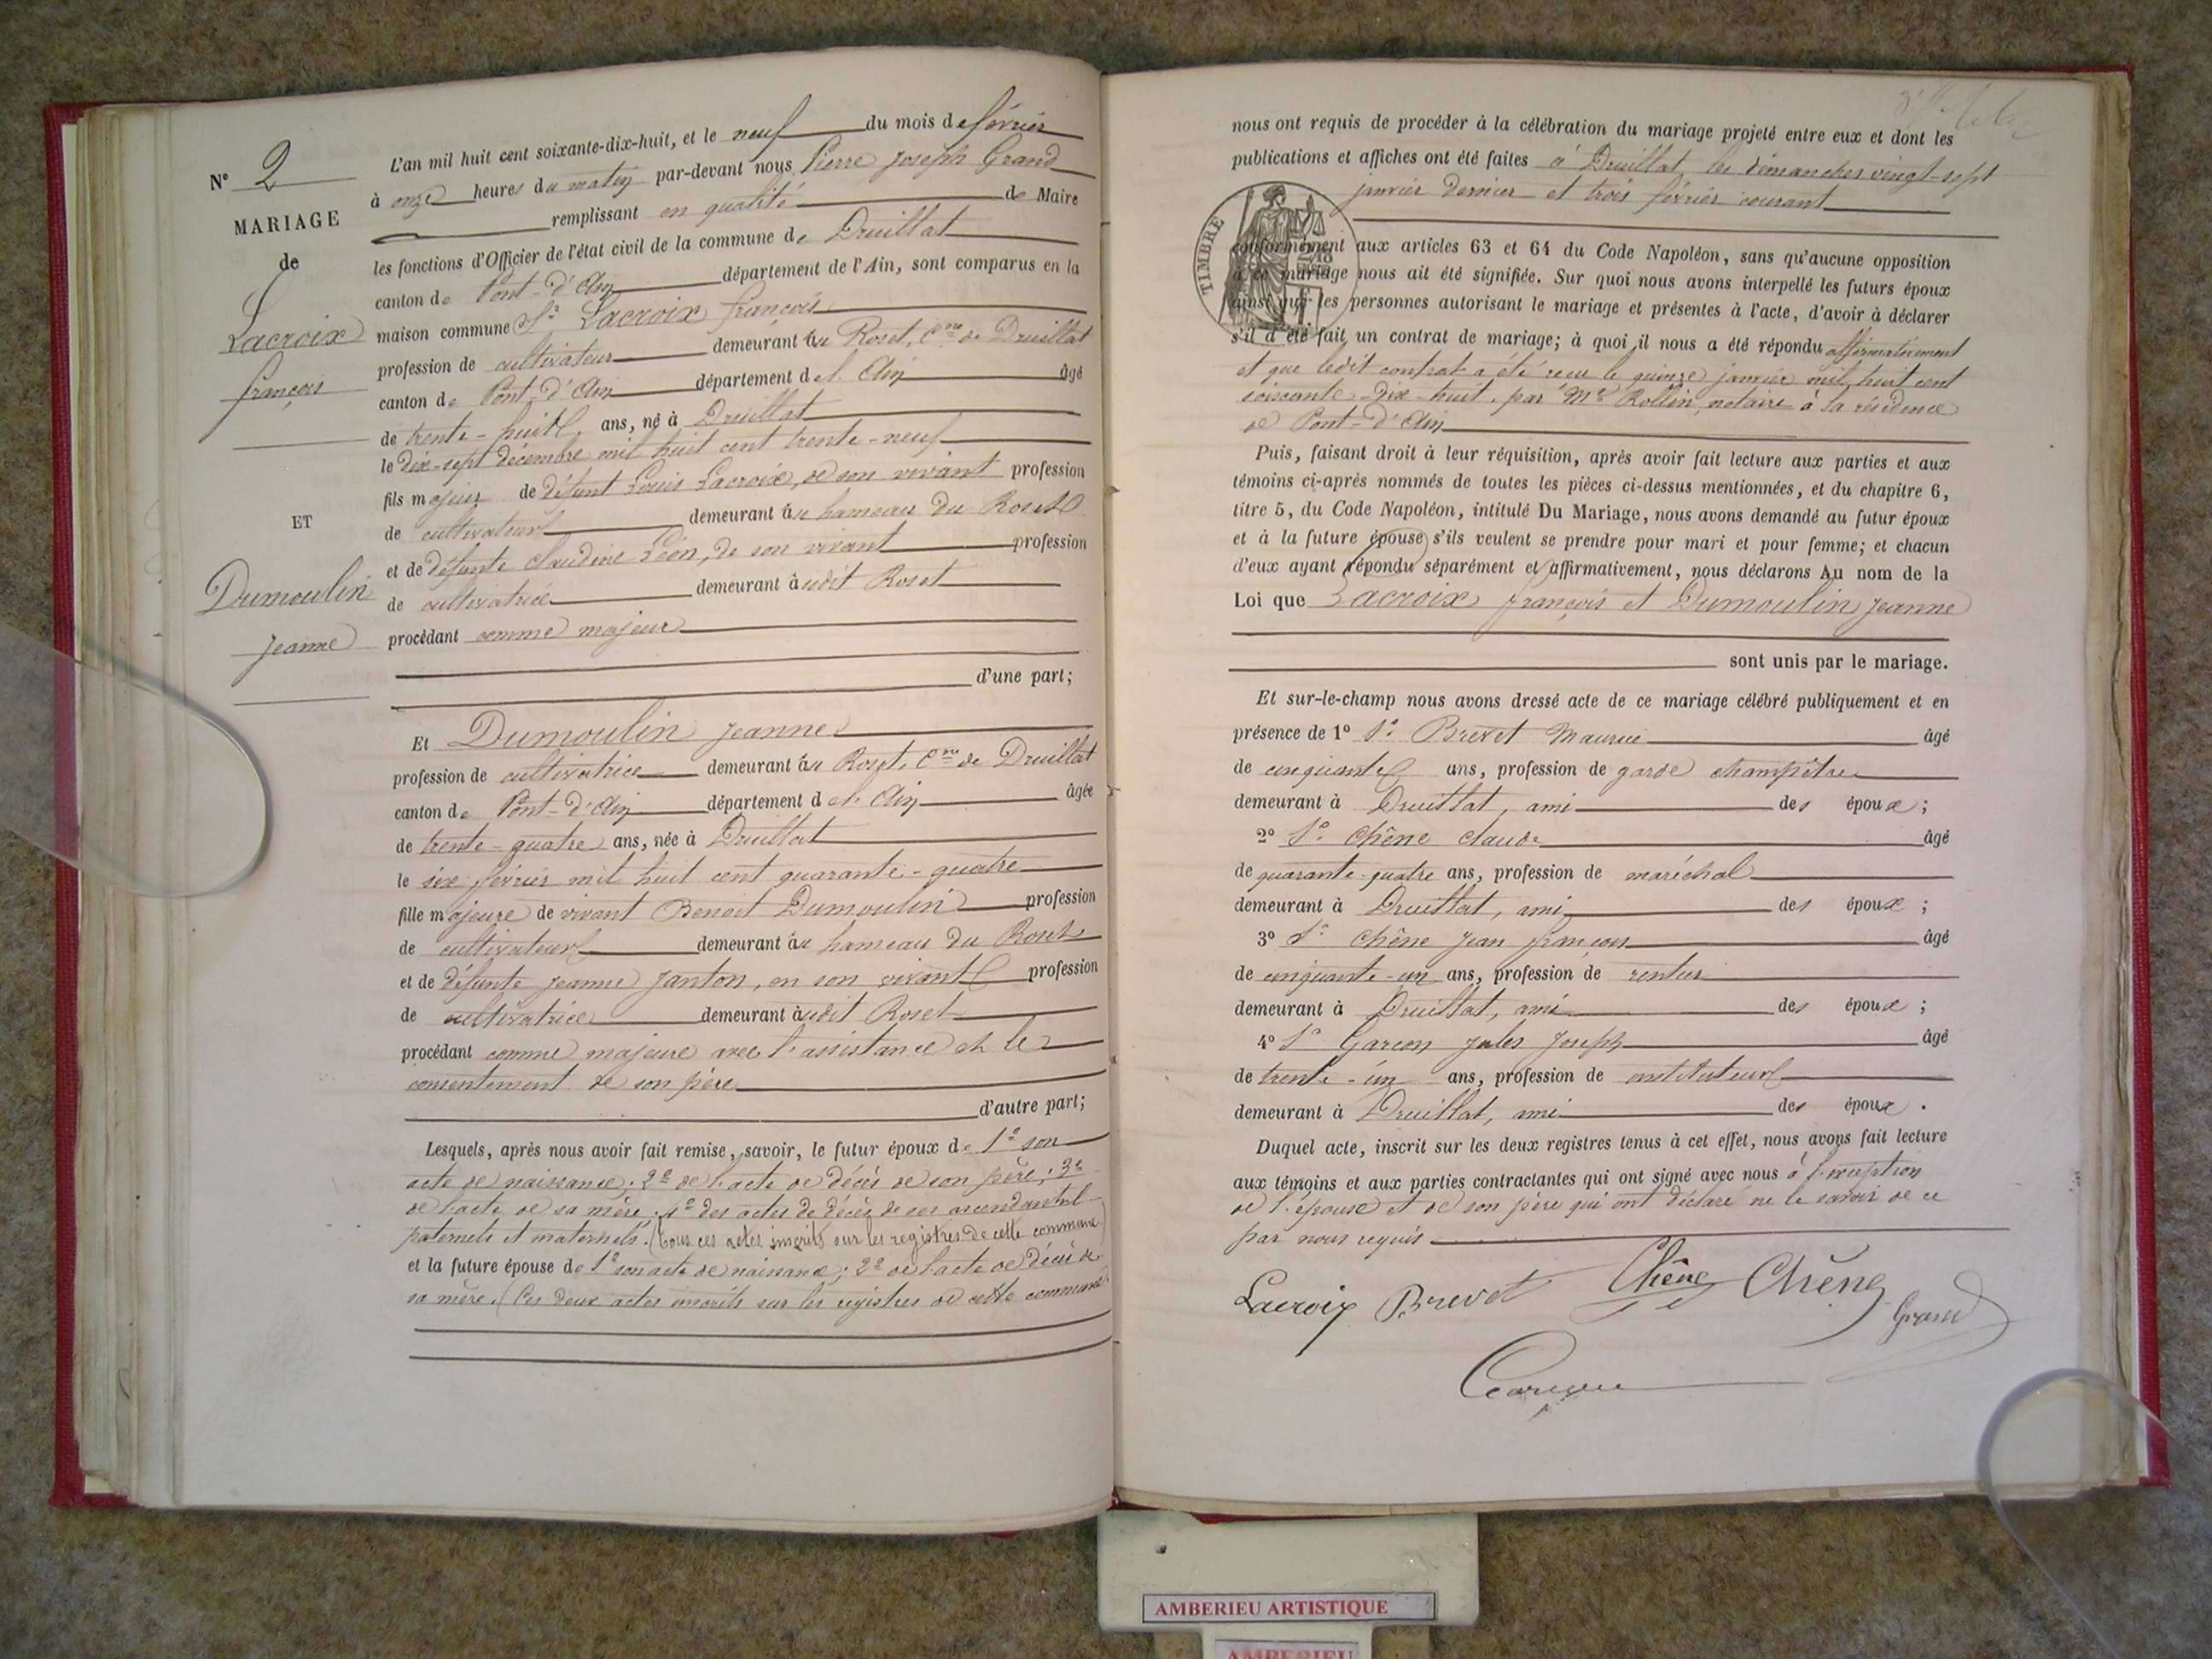 N° 2
MARIAGE
de
Lacroix
françois
ET
Dumoulin
Jeanne
L'an mil huit cent soixante-dix-huit, et le neuf du mois de février
à onze heures du matin par-devant nous Pierre Joseph Grand
remplissant en qualité de Maire
les fonctions d'Officier de l'état civil de la commune de Druillat
canton de Pont-d'Ain département de l'Ain, sont comparus en la
maison commune Sr Lacroix françois
profession de cultivateur demeurant au Roset, Cne de Druillat
canton de Pont-d'Ain département de l'Ain âgé
de trente-huit ans, né à Druillat
le dix-sept décembre mil huit cent trente-neuf
fils majeur de défunt Louis Lacroix, de son vivant profession
de cultivateur demeurant au hameau du Roset
et de défunte Claudine Léon, de son vivant profession
de cultivatrice demeurant audit Roset
procédant comme majeur
d'une part;
Et Dumoulin Jeanne
profession de cultivatrice demeurant au Roset, Cne de Druillat
canton de Pont-d'Ain département de l'Ain âgée
de trente-quatre ans, née à Druillat
le six février mil huit cent quarante-quatre
fille majeure de vivant Benoit Dumoulin profession
de cultivateur demeurant au hameau du Roset
et de défunte Jeanne Janton, en son vivant profession
de cultivatrice demeurant audit Roset
procédant comme majeure avec l'assistance et le
consentement de son père
d'autre part;
Lesquels, après nous avoir fait remise, savoir, le futur époux de 1° son
acte de naissance; 2° de l'acte de décès de son père; 3°
de l'acte de sa mère; 4° des actes de décès de ses ascendants
paternels et maternels. (tous ces actes inscrits sur les registres de cette commune)
et la future épouse de 1° son acte de naissance; 2° de l'acte de décès de
sa mère. (Ces deux actes inscrits sur les registres de cette commune)
nous ont requis de procéder à la célébration du mariage projeté entre eux et dont les
publications et affiches ont été faites à Druillat les dimanches vingt-sept
janvier dernier et trois février courant
TIMBRE
conformément aux articles 63 et 64 du Code Napoléon, sans qu'aucune opposition
à ce mariage nous ait été signifiée. Sur quoi nous avons interpellé les futurs époux
ainsi que les personnes autorisant le mariage et présentes à l'acte, d'avoir à déclarer
s'il a été fait un contrat de mariage; à quoi il nous a été répondu affirmativement
et que ledit contrat a été reçu le quinze janvier mil huit cent
soixante-dix-huit, par Me Rollin, notaire à la résidence
de Pont-d'Ain
Puis, faisant droit à leur réquisition, après avoir fait lecture aux parties et aux
témoins ci-après nommés de toutes les pièces ci-dessus mentionnées, et du chapitre 6,
titre 5, du Code Napoléon, intitulé Du Mariage, nous avons demandé au futur époux
et à la future épouse s'ils veulent se prendre pour mari et pour femme; et chacun
d'eux ayant répondu séparément et affirmativement, nous déclarons Au nom de la
Loi que Lacroix françois et Dumoulin Jeanne
sont unis par le mariage.
Et sur-le-champ nous avons dressé acte de ce mariage célébré publiquement et en
présence de 1° Sr Brevet Maurice âgé
de cinquante ans, profession de garde champêtre
demeurant à Druillat, ami des époux;
2° Sr Chêne Claude âgé
de quarante-quatre ans, profession de maréchal
demeurant à Druillat, ami des époux;
3° Sr Chêne Jean françois âgé
de cinquante-un ans, profession de rentier
demeurant à Druillat, ami des époux;
4° Sr Garçon Jules Joseph âgé
de trente-un ans, profession de instituteur
demeurant à Druillat, ami des époux.
Duquel acte, inscrit sur les deux registres tenus à cet effet, nous avons fait lecture
aux témoins et aux parties contractantes qui ont signé avec nous à l'exception
de l'épouse et de son père qui ont déclaré ne le savoir de ce
par nous requis
Lacroix Brevet Chêne Chêne
Grand
AMBERIEU ARTISTIQUE
AMBERIEU